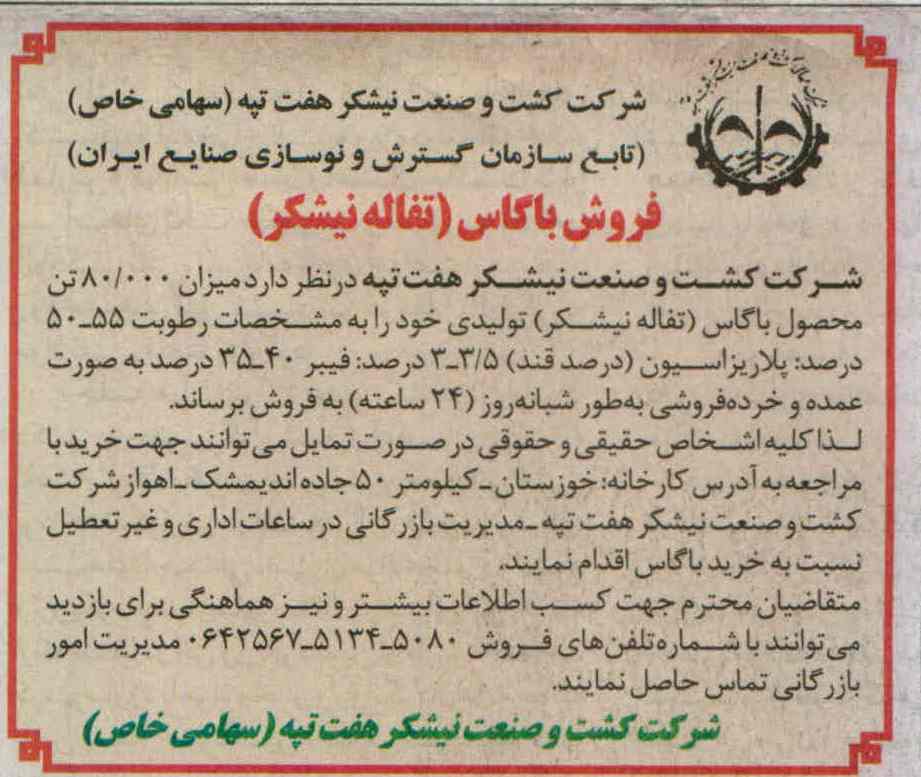 شرکت کشت و صنعت نیشکر هفت تپه (سهامی خاص)
(تابع سازمان گسترش و نوسازی صنایع ایران)
فروش باگاس (تفاله نیشکر)
شرکت کشت و صنعت نیشکر هفت تپه درنظر دارد میزان ۸۰/۰۰۰ تن
محصول باگاس (تفاله نیشکر) تولیدی خود را به مشخصات رطوبت ۵۵ـ۵۰
درصد: پلاریزاسیون (درصد قند) ۳/۵ـ۳ درصد: فیبر ۴۰ـ۳۵ درصد به صورت
عمده و خرده‌فروشی به‌طور شبانه‌روز (۲۴ ساعته) به فروش برساند.
لذا کلیه اشخاص حقیقی و حقوقی در صورت تمایل می‌توانند جهت خرید با
مراجعه به آدرس کارخانه: خوزستان ـ کیلومتر ۵۰ جاده اندیمشک ـ اهواز شرکت
کشت و صنعت نیشکر هفت تپه ـ مدیریت بازرگانی در ساعات اداری و غیر تعطیل
نسبت به خرید باگاس اقدام نمایند.
متقاضیان محترم جهت کسب اطلاعات بیشتر و نیز هماهنگی برای بازدید
می‌توانند با شماره تلفن‌های فروش ۵۰۸۰ـ۵۱۳۴ـ۰۶۴۲۵۶۷ مدیریت امور
بازرگانی تماس حاصل نمایند.
شرکت کشت و صنعت نیشکر هفت تپه (سهامی خاص)